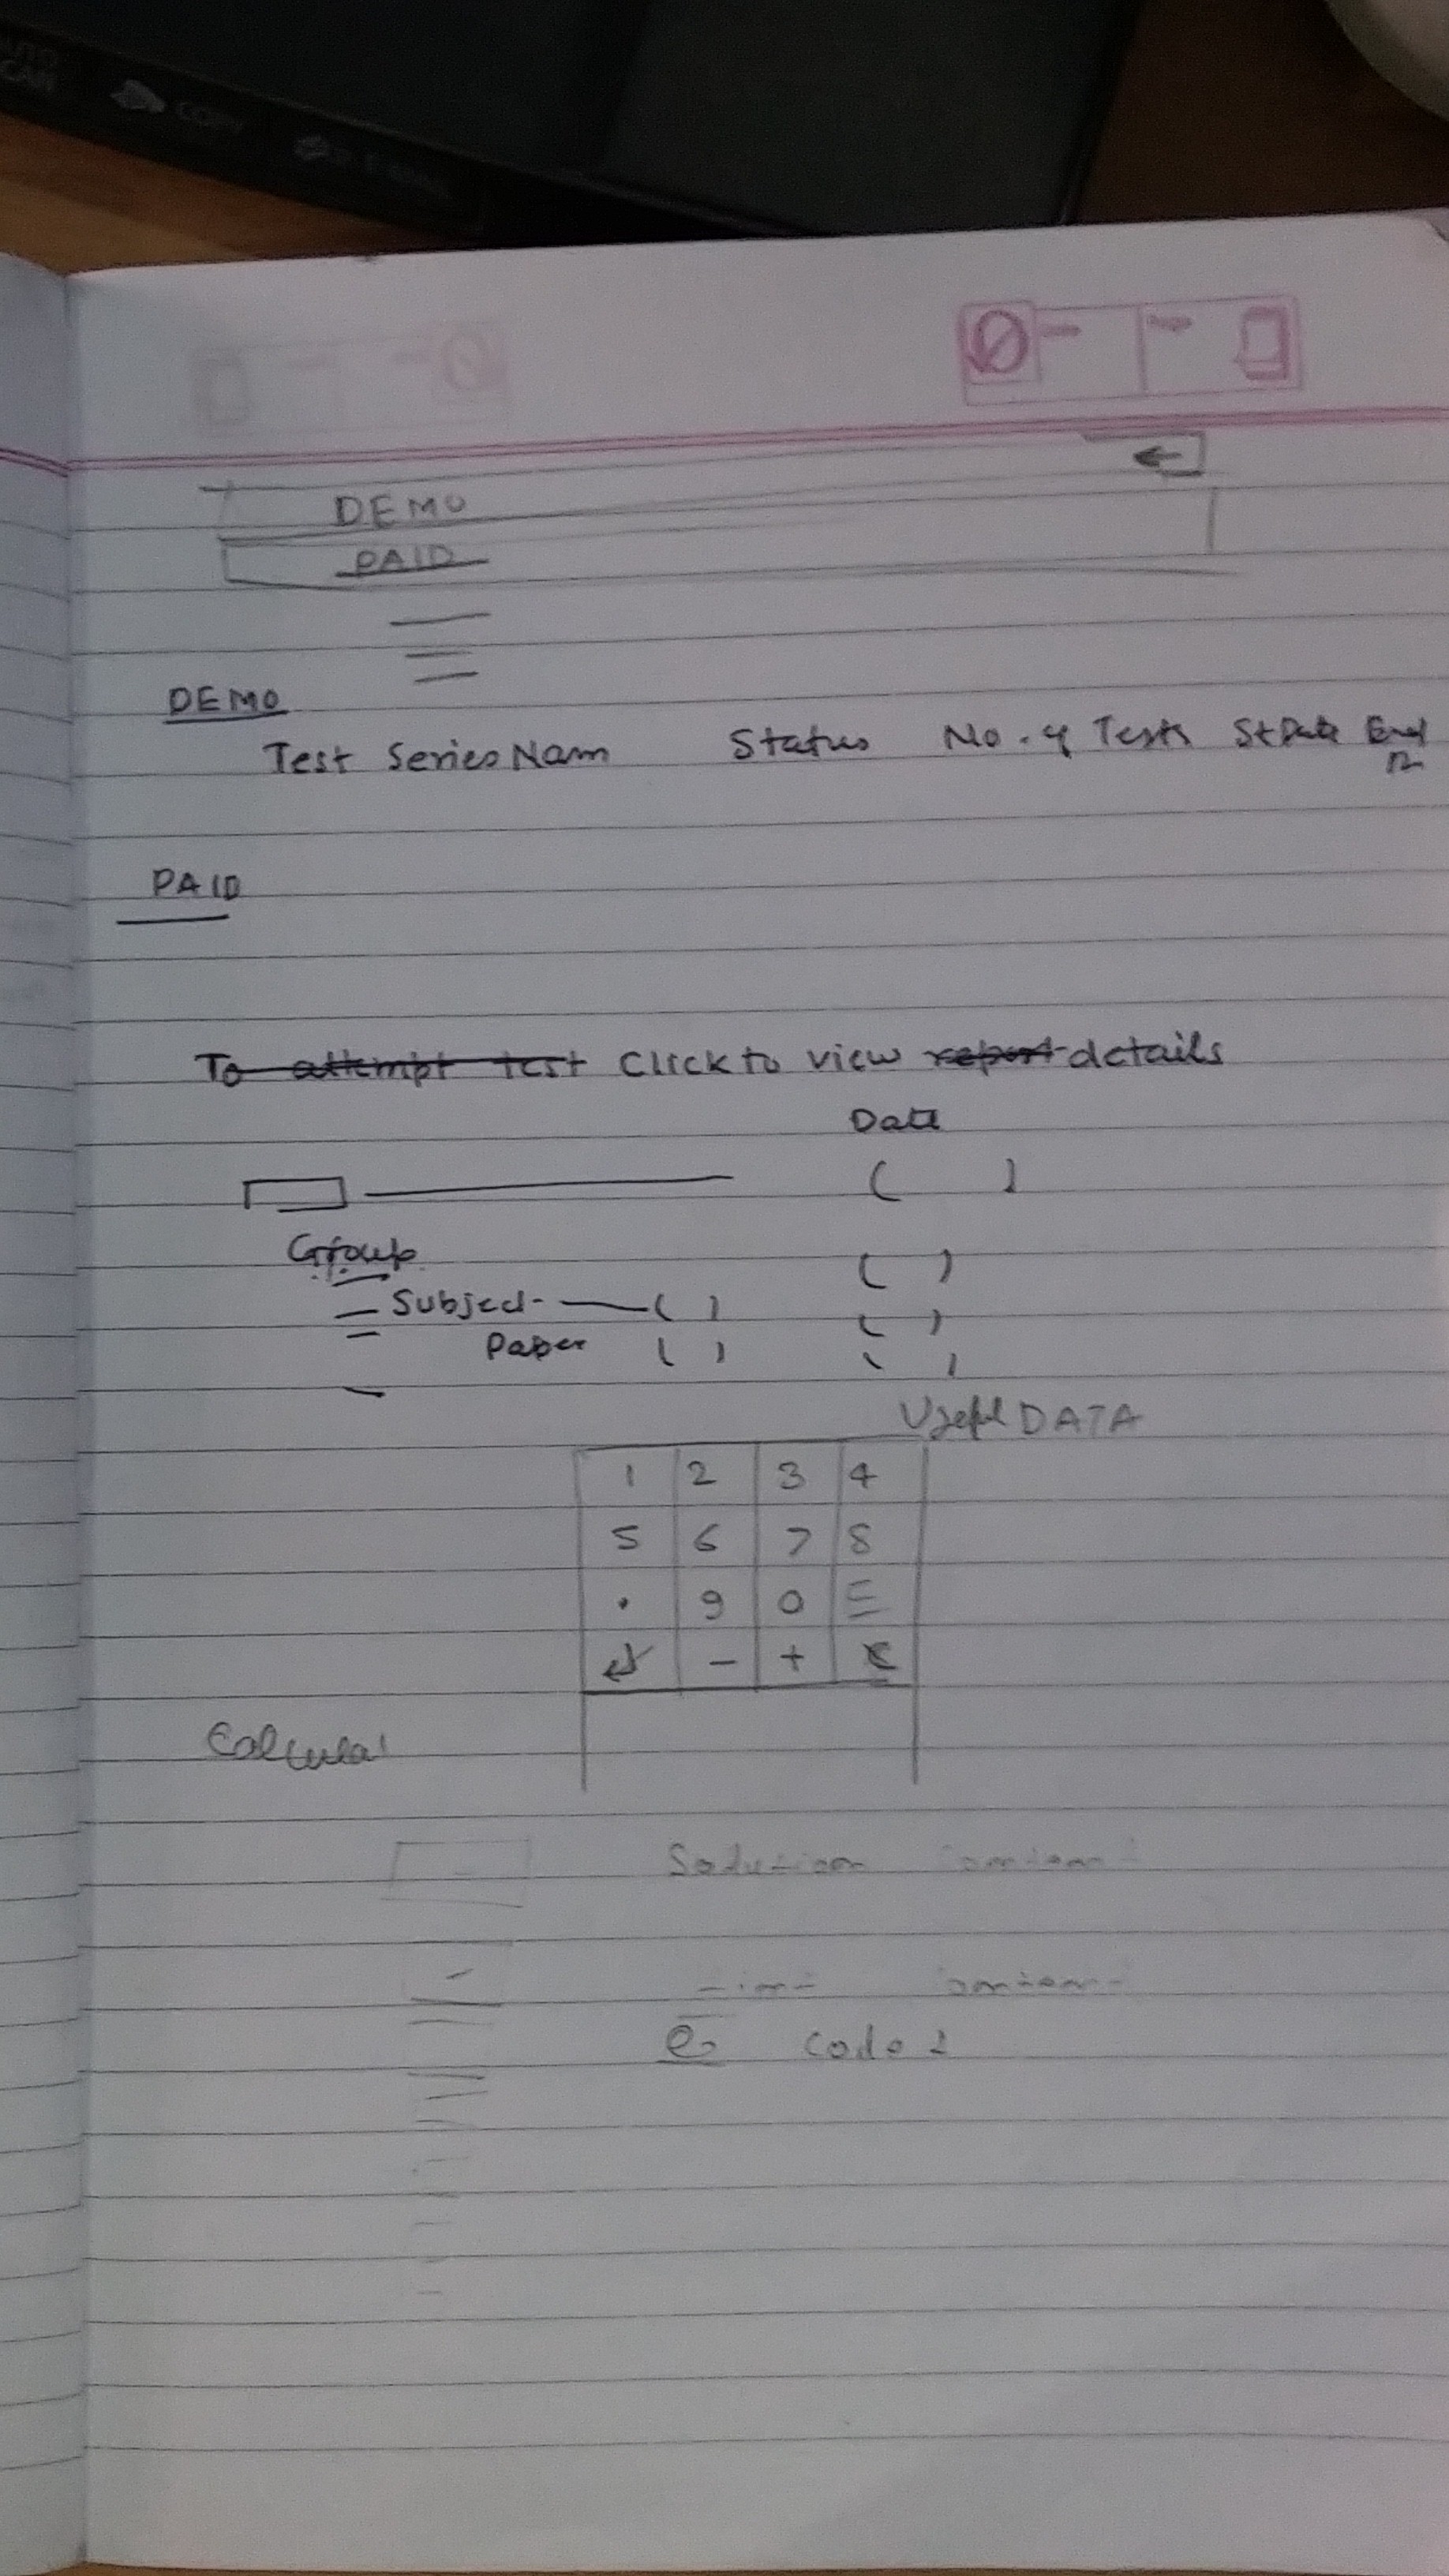 COPY
←
DEMO
PAID
DEMO
Test Series Nam Status No. of Tests St Date End
PAID
To attempt test Click to view report details
Date
( )
Group ( )
Subject ( ) ( )
Paper ( ) ( )
Useful DATA
1 2 3 4
5 6 7 8
. 9 0 =
- +
Calcula
Solution
Code 2